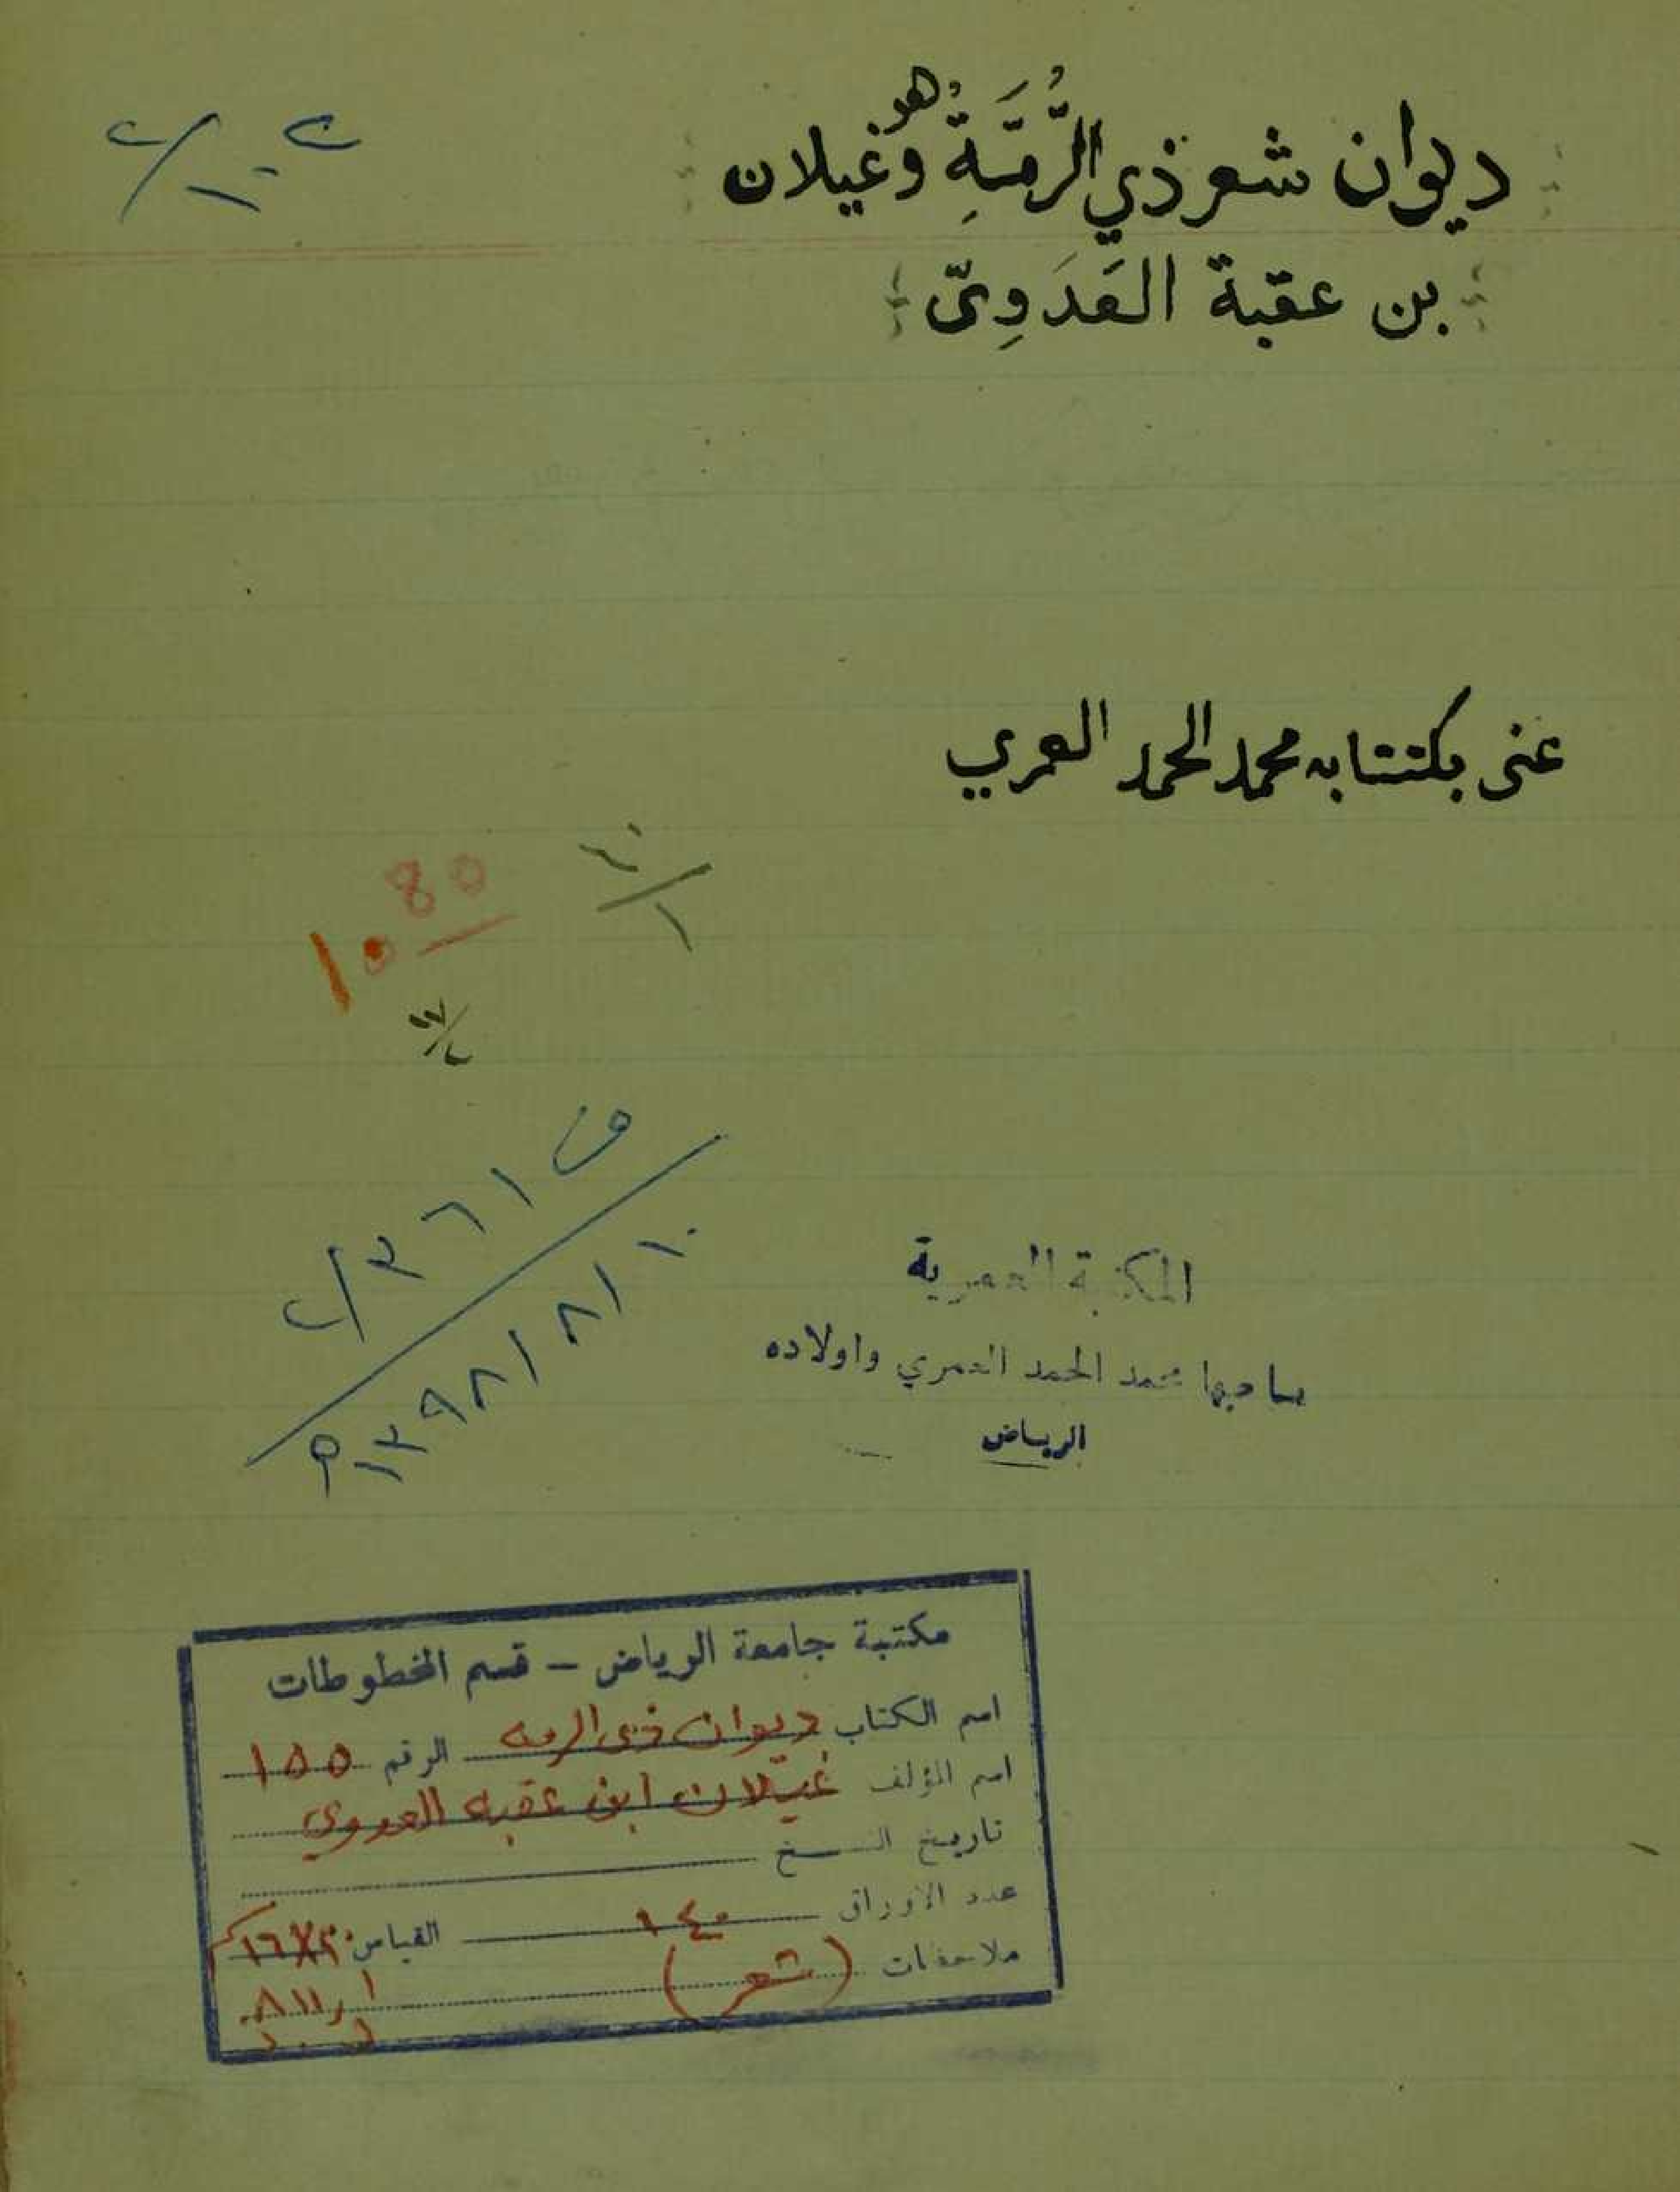 ديوان شعر ذي الرُّمَّةِ وهُو غيلان
بن عقبة العَدَوِىّ
عنى بكتتابه محمد الحمد العمري
المكتبة العمرية
صاحبها محمد الحمد العمري واولاده
الرياض
ف ٣٦١/
١٣٩٨/٨/١٠
مكتبة جامعة الرياض - قسم المخطوطات
اسم الكتاب ديوان ذى الرمه الرقم ١٥٥
اسم المؤلف غيلان ابن عقبه العدوي
تاريخ النسخ
عدد الاوراق ١٤٠ القياس
ملاحظات (شعر)